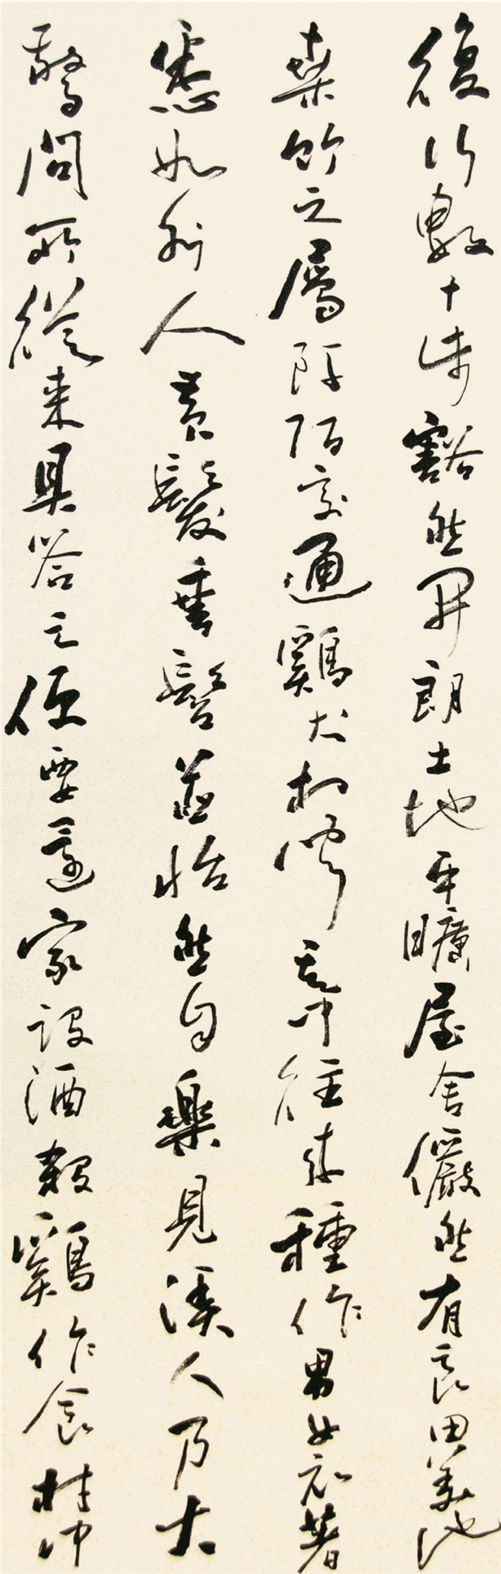 復行數十步豁然開朗土地平曠屋舍儼然有良田美池
桑竹之屬阡陌交通鷄犬相聞其中往来種作男女衣著
悉如外人黄髮垂髫並怡然自樂見漁人乃大
驚問所從来具答之便要還家設酒殺鷄作食村中